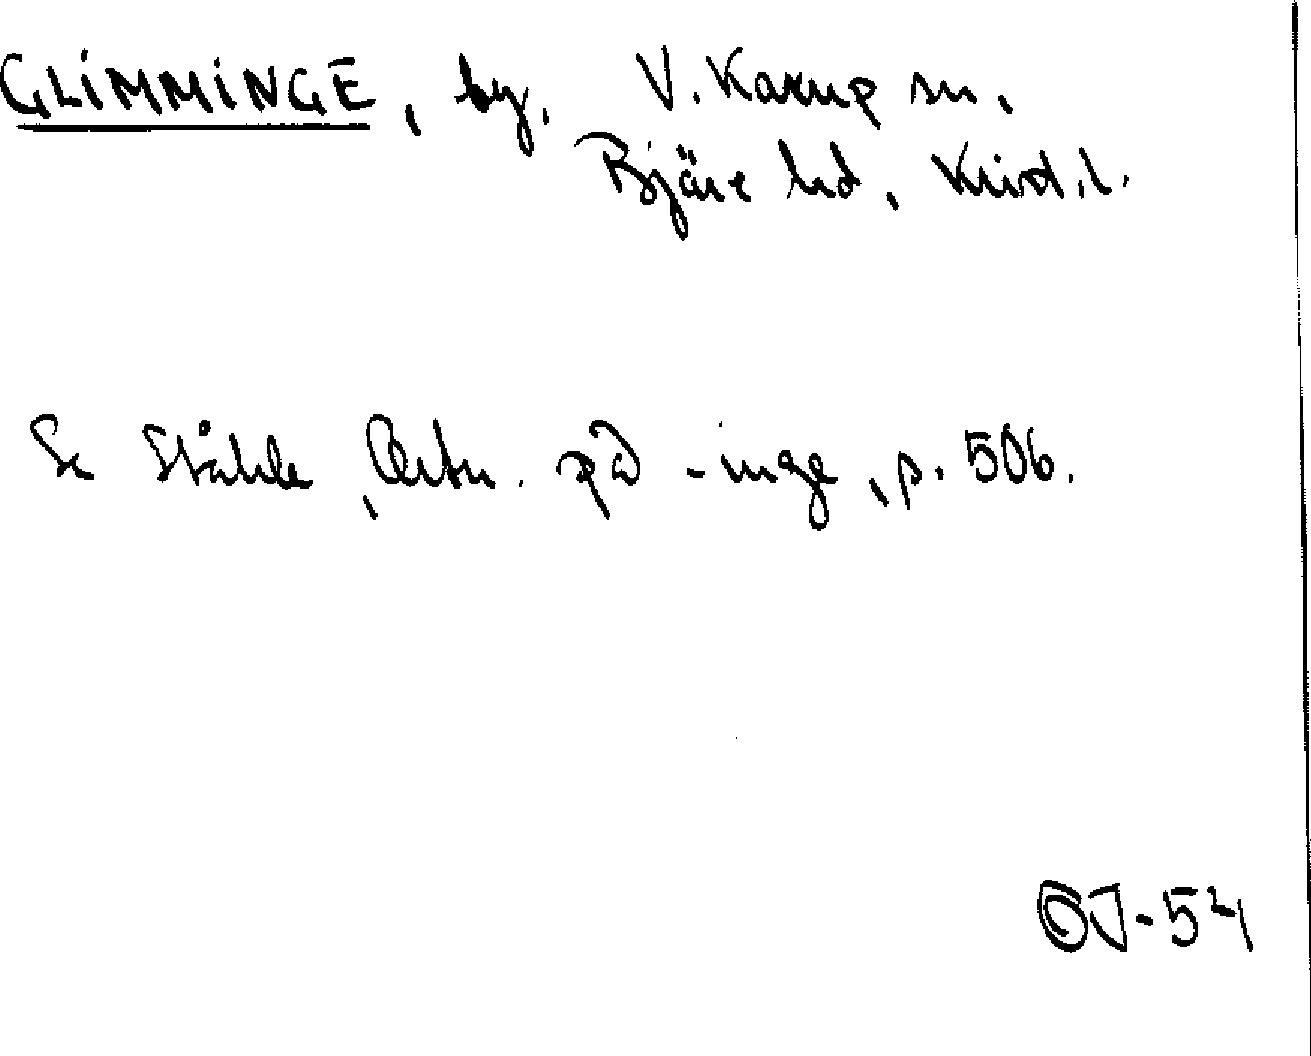 GLIMMINGE, by. V. Karup sn.
Bjäre hd, Krist.l.
Se Ståhle, Ortn. på -inge, p. 506.
OJ-54